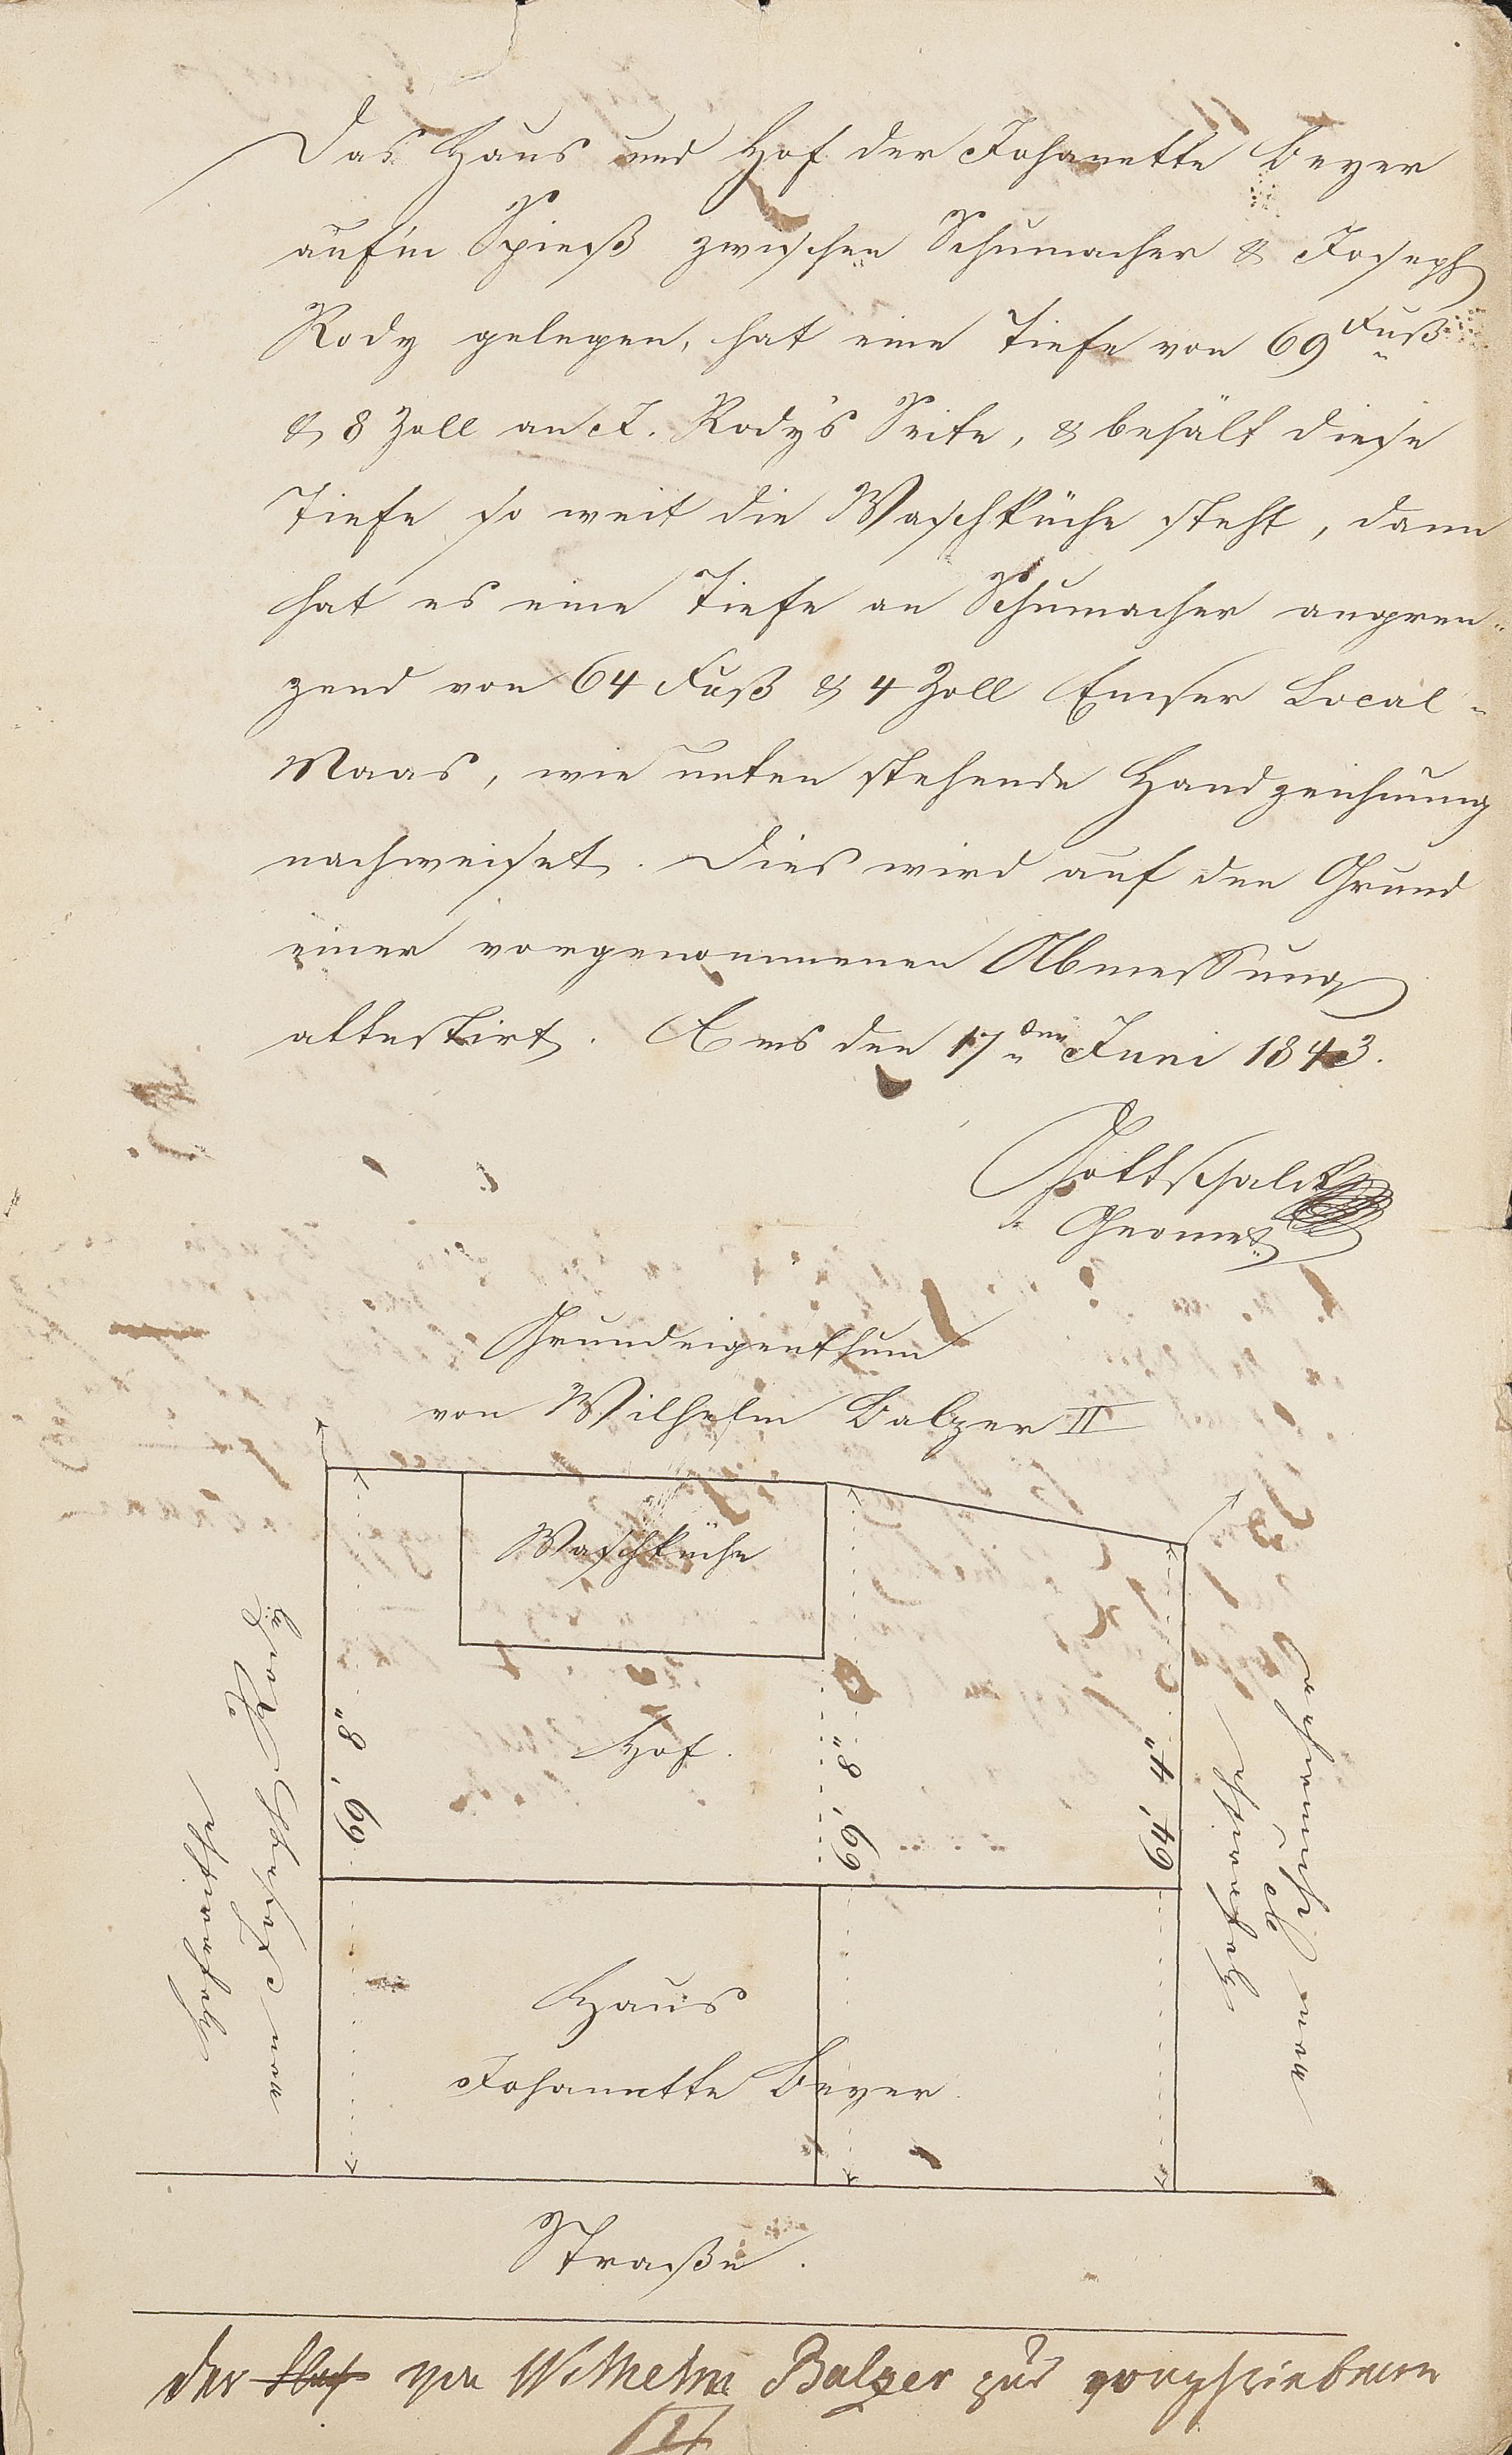 Das Haus und Hof der Johanette Beyer
auf'm Spieß zwischen Schumacher & Joseph
Rody gelegen, hat eine Tiefe von 69 Fuß
& 8 Zoll an J. Rody's Seite, & behält diese
Tiefe so weit die Waschküche steht, dann
hat es eine Tiefe an Schumacher angren-
zend von 64 Fuß & 4 Zoll Emser Local-
Maas, wie unten stehende Handzeichnung
nachweiset. Dies wird auf den Grund
einer vorgenommenen Abmessung
attestirt. Ems den 17ten Juni 1843.
Gottschalck
Geomet.
Grundeigenthum
von Wilhelm Balzer II
Waschküche
Hof.
69' 8"
69' 8"
64' 4"
von Joseph Rody
Hofraithe
von Schumacher
Hofraithe
Haus
Johanette Beyer
Straße.
der Hof von Wilhelm Balzer zur vorgschriebnen
II